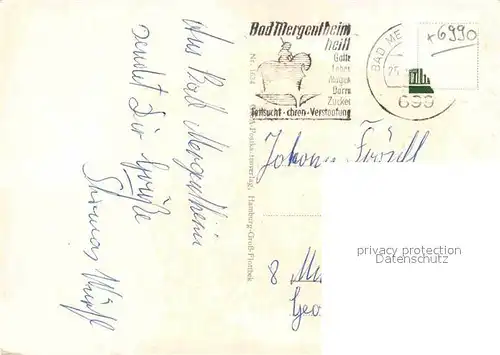 Aus Bad Mergentheim
sendet Dir Grüße
Thomas
Bad Mergentheim
heilt
Galle
Leber
Magen
Darm
Zucker
Fettsucht · chron. Verstopfung
BAD ME
25.
699
+6990
Johann
8
Geo
Postkartenverlag, Hamburg-Groß-Flottbek
privacy protection
Datenschutz